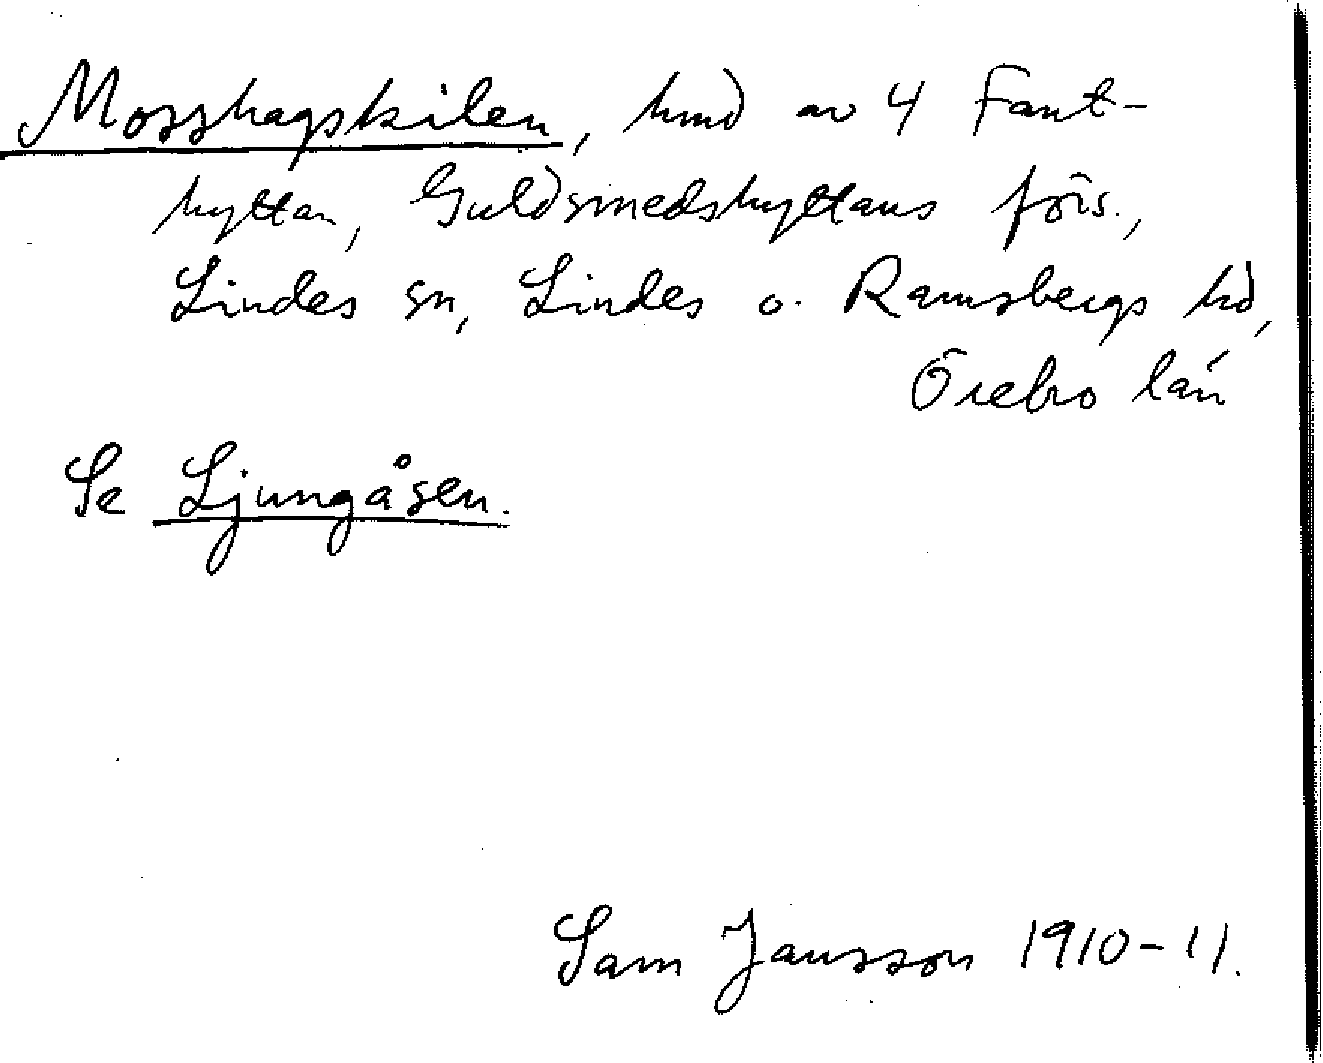 Mosshagskilen, hmd av 4 Fant-
hyttan, Guldsmedshyttans förs.,
Lindes sn, Lindes o. Ramsbergs hd,
Örebro län
Se Ljungåsen.
Sam Jansson 1910-11.